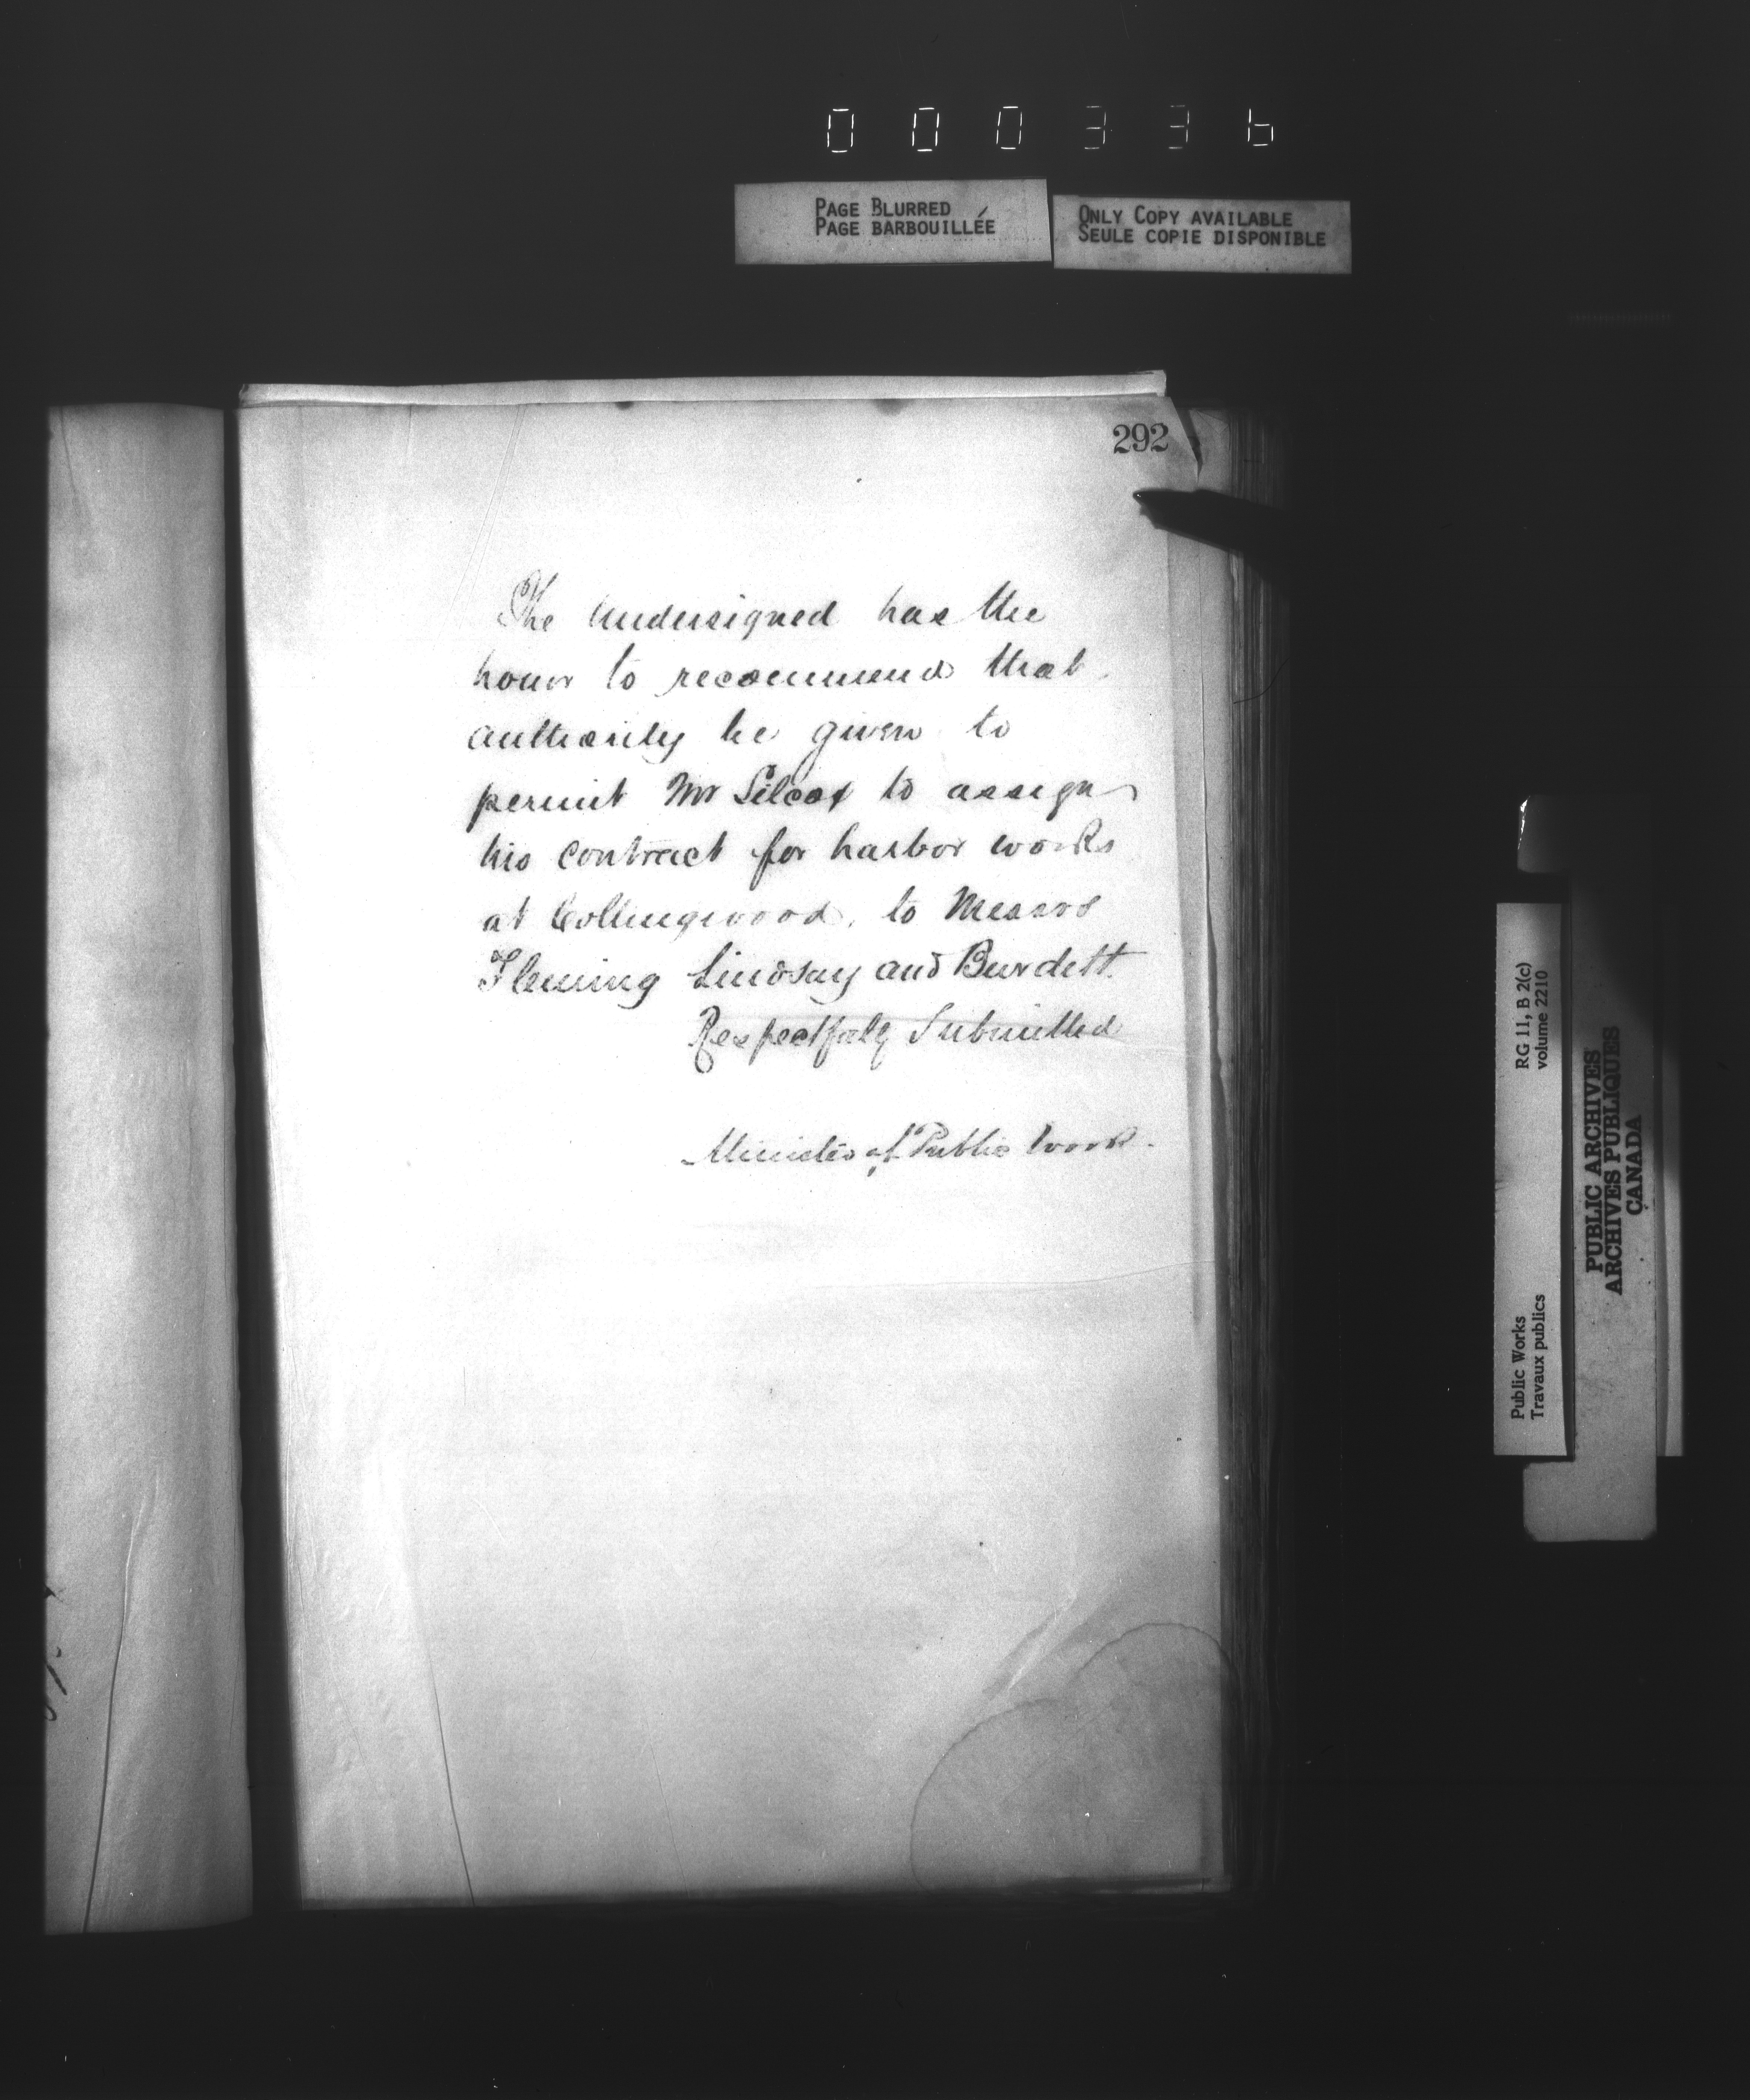 000336
PAGE BLURRED
PAGE BARBOUILLÉE
ONLY COPY AVAILABLE
SEULE COPIE DISPONIBLE
292
The Undersigned has the
honor to recommend that
authority be given to
permit Mr Silcox to assign
his contract for harbor works
at Collingwood, to Messrs
Fleming Lindsay and Burdett.
Respectfully Submitted
Minister of Public Works.
RG 11, B 2(c)
volume 2210
Public Works
Travaux publics
PUBLIC ARCHIVES
ARCHIVES PUBLIQUES
CANADA